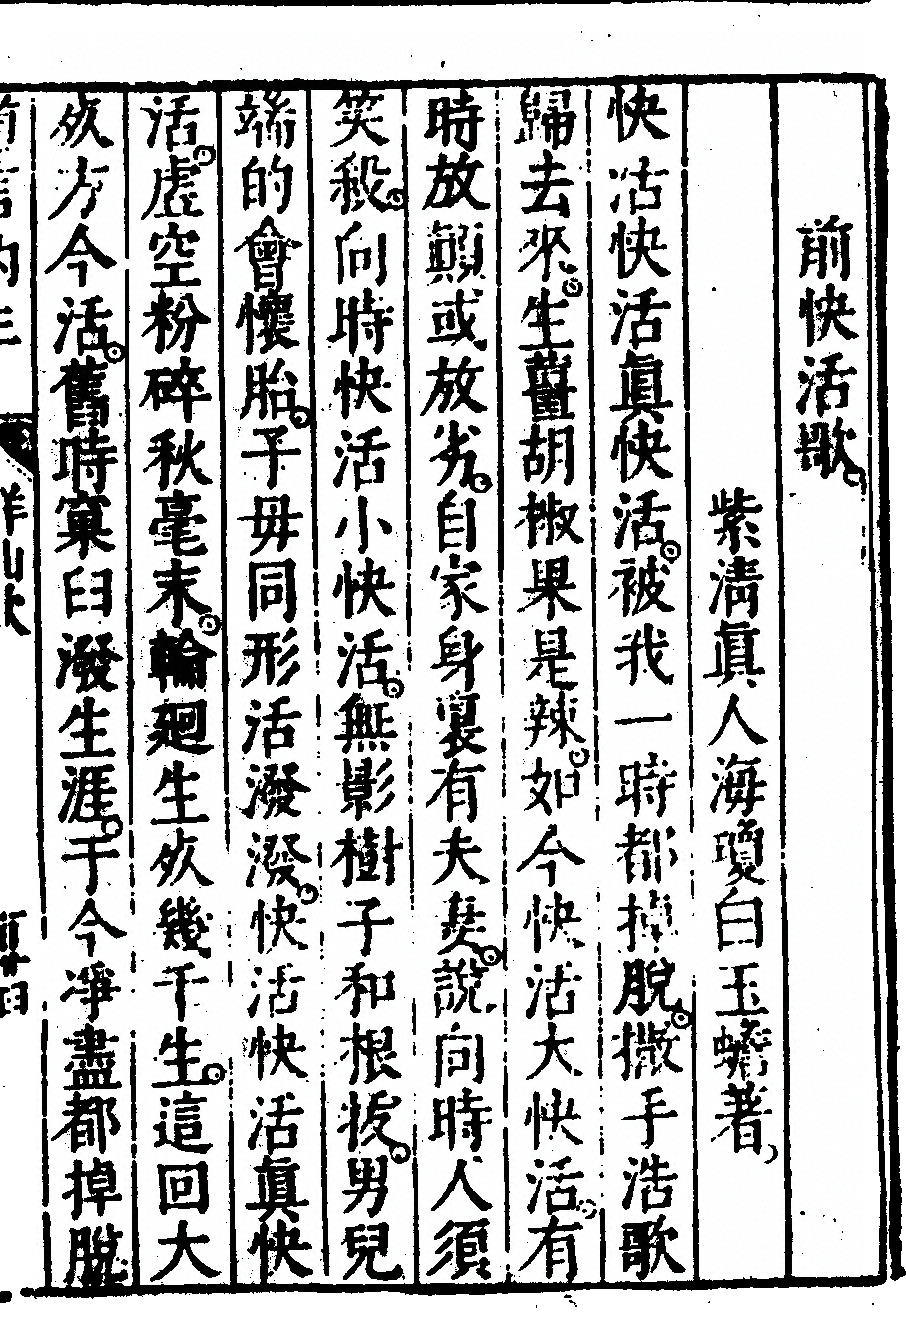 前快活歌
紫淸眞人海瓊白玉蟾著
快活快活眞快活被我一時都掉脫撒手浩歌
歸去來生薑胡椒果是辣如今快活大快活有
時放顚或放劣自家身裏有夫妻說向時人須
笑殺向時快活小快活無影樹子和根拔男兒
端的會懷胎子母同形活潑潑快活快活眞快
活虛空粉碎秋毫末輪廻生死幾千生這回大
死方今活舊時窠臼潑生涯于今淨盡都掉脫